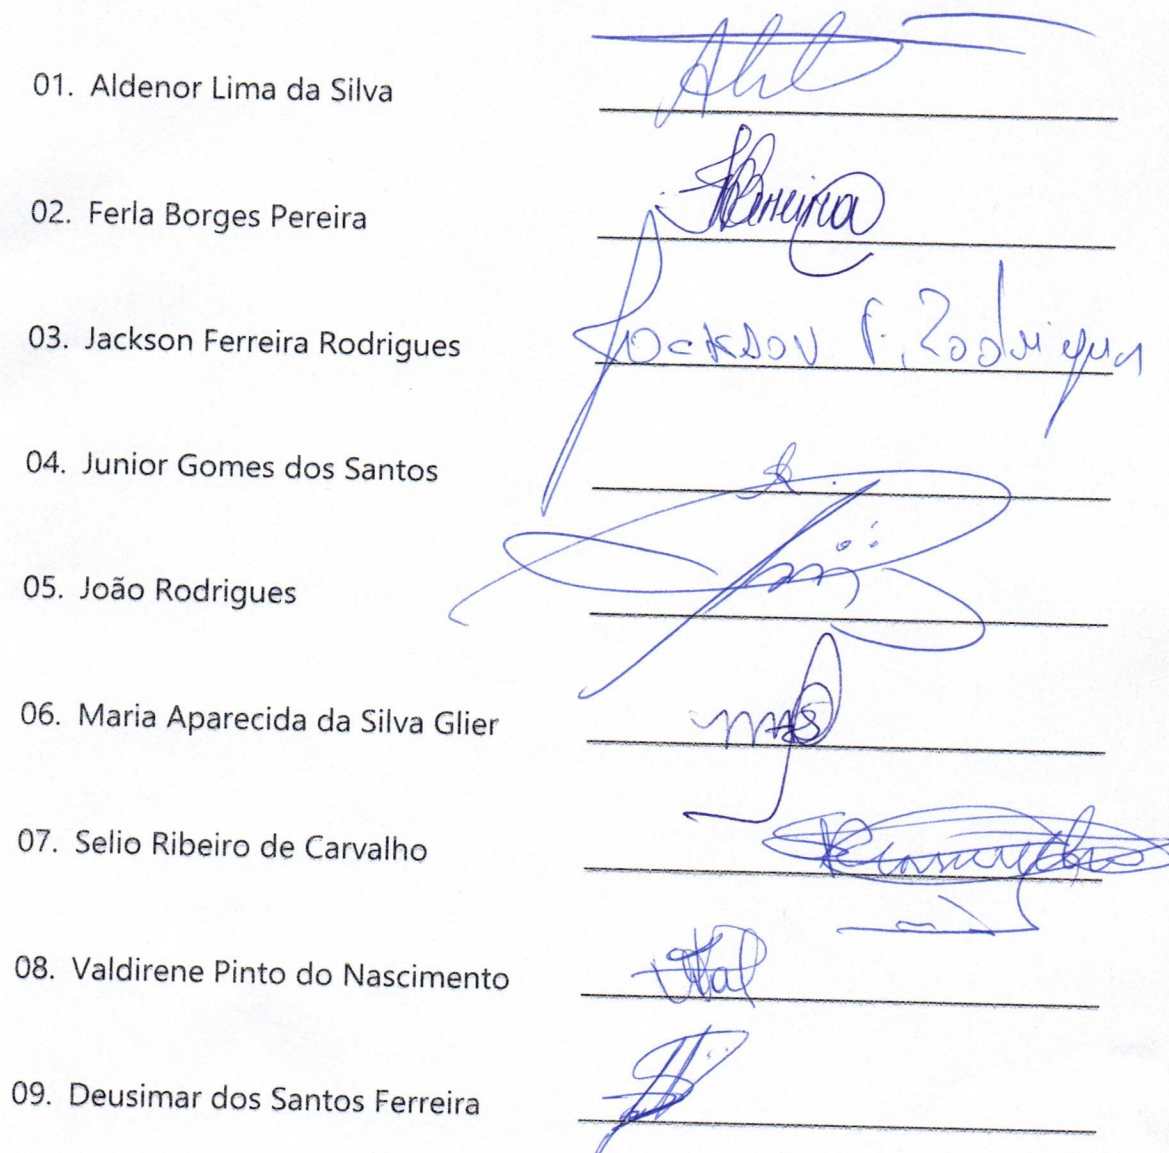 01. Aldenor Lima da Silva
02. Ferla Borges Pereira
03. Jackson Ferreira Rodrigues Jackson F. Rodrigues
04. Junior Gomes dos Santos
05. João Rodrigues
06. Maria Aparecida da Silva Glier
07. Selio Ribeiro de Carvalho
08. Valdirene Pinto do Nascimento Val
09. Deusimar dos Santos Ferreira